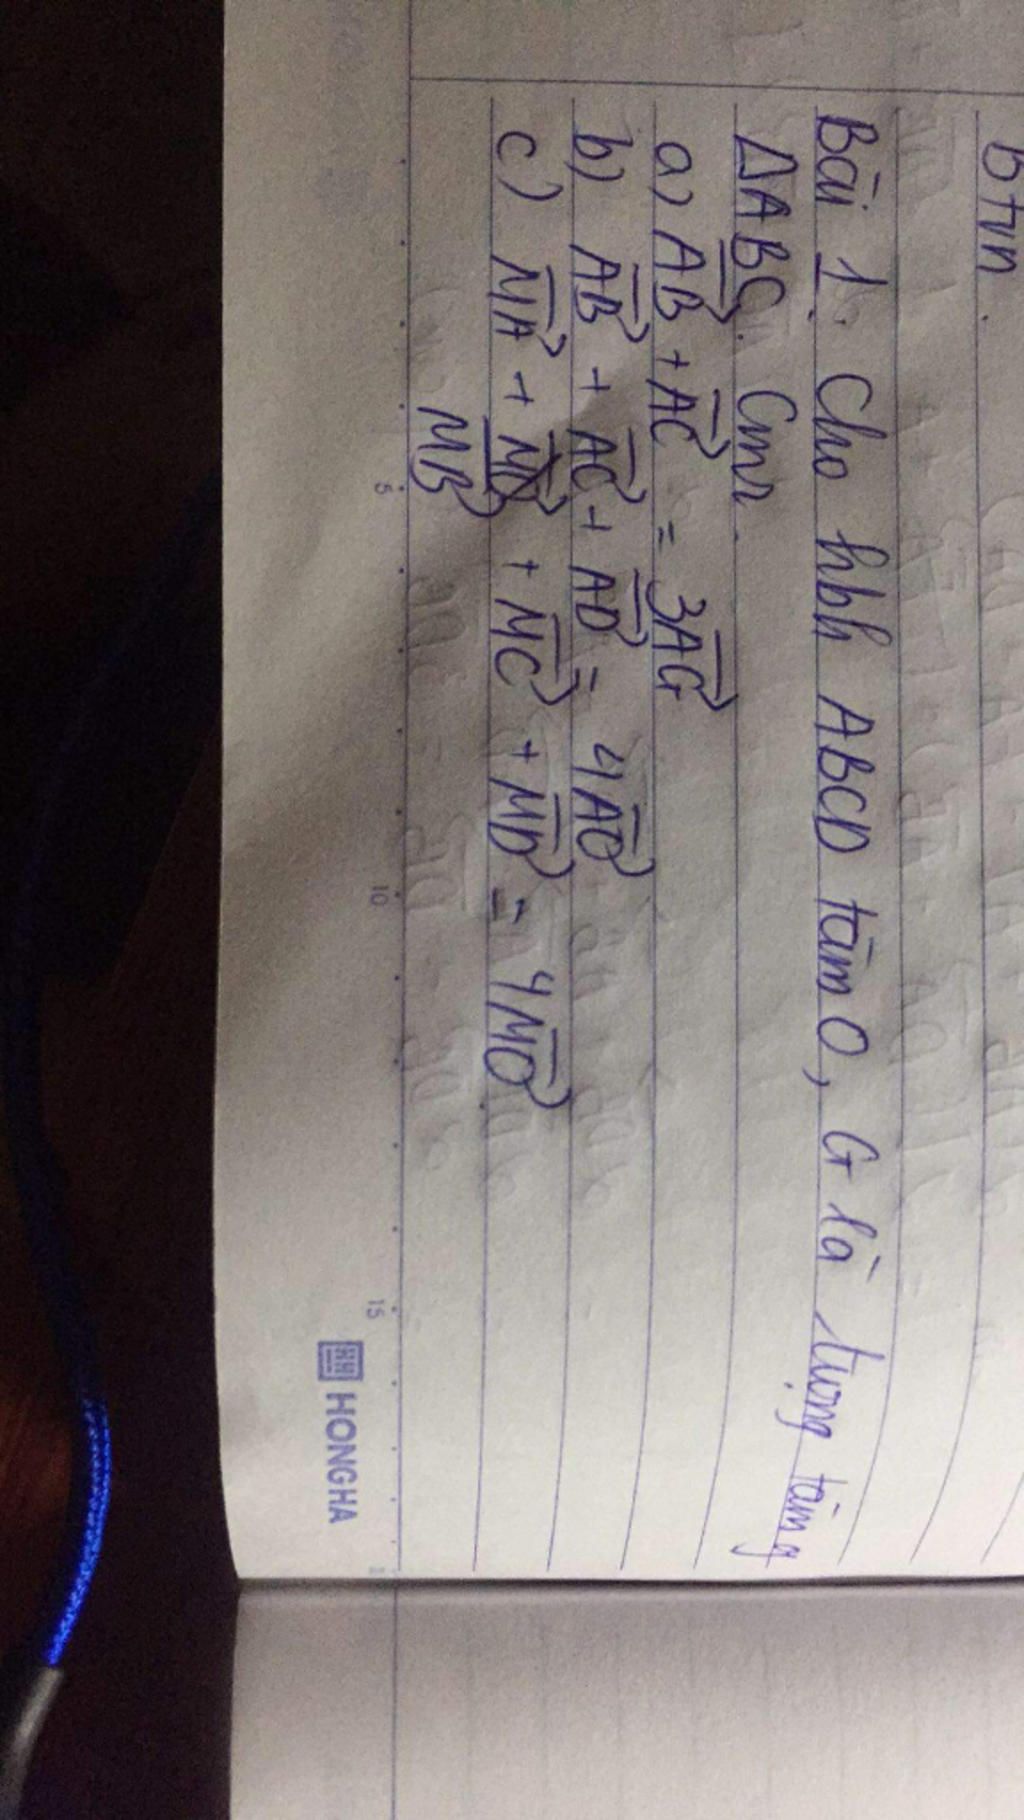 btvn.
Bài 1. Cho hbh ABCD tâm O, G là trọng tâm
ΔABC. Cmr.
a) AB + AC = 3AG
b) AB + AC + AD = 4AO
c) MA + MC + MD = 4MO
MB
5
10
15
HONGHA